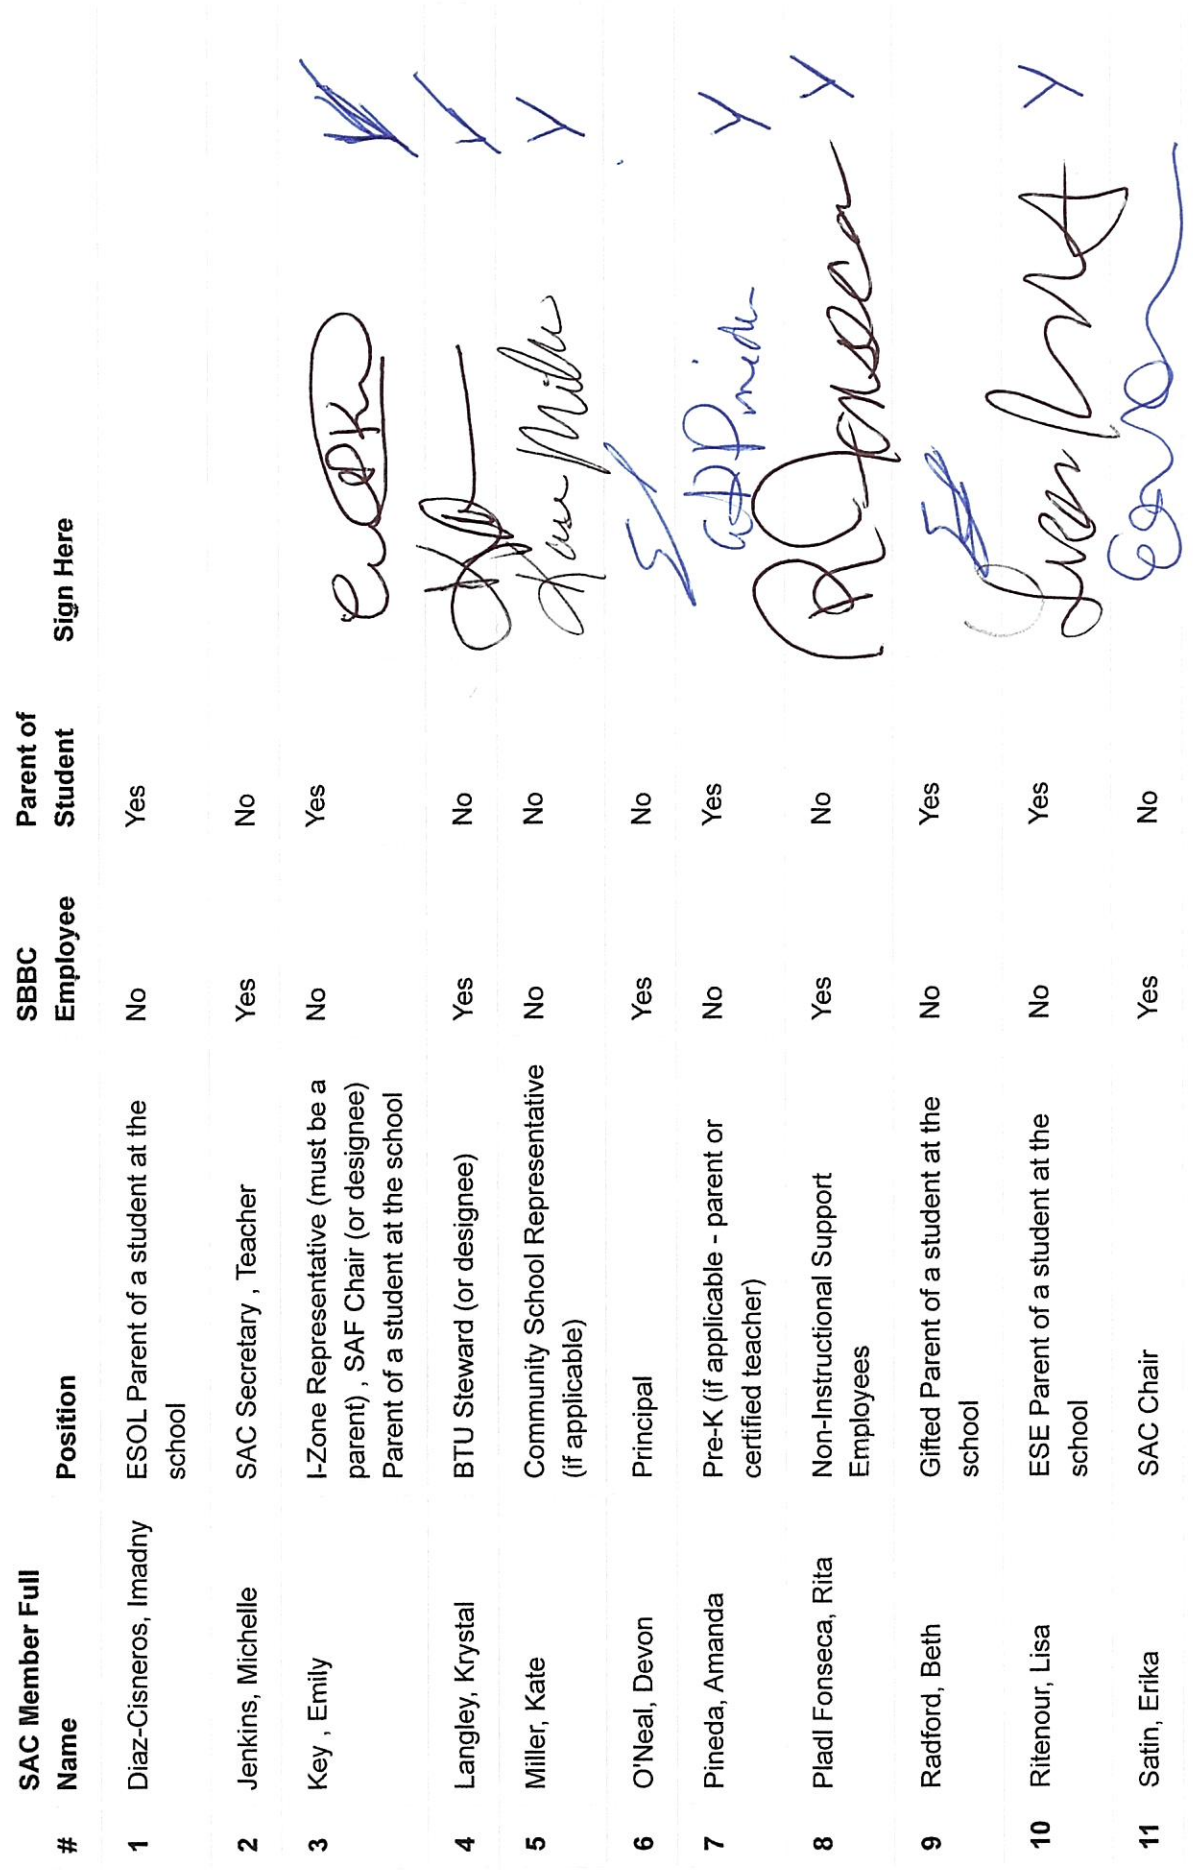 # SAC Member Full Name Position SBBC Employee Parent of Student Sign Here
1 Diaz-Cisneros, Imadny ESOL Parent of a student at the school No Yes
2 Jenkins, Michelle SAC Secretary , Teacher Yes No
3 Key , Emily I-Zone Representative (must be a parent) , SAF Chair (or designee) Parent of a student at the school No Yes
4 Langley, Krystal BTU Steward (or designee) Yes No
5 Miller, Kate Community School Representative (if applicable) No No Kate Miller Y
6 O'Neal, Devon Principal Yes No
7 Pineda, Amanda Pre-K (if applicable - parent or certified teacher) No Yes Y
8 Pladl Fonseca, Rita Non-Instructional Support Employees Yes No R Fonseca Y
9 Radford, Beth Gifted Parent of a student at the school No Yes
10 Ritenour, Lisa ESE Parent of a student at the school No Yes Y
11 Satin, Erika SAC Chair Yes No